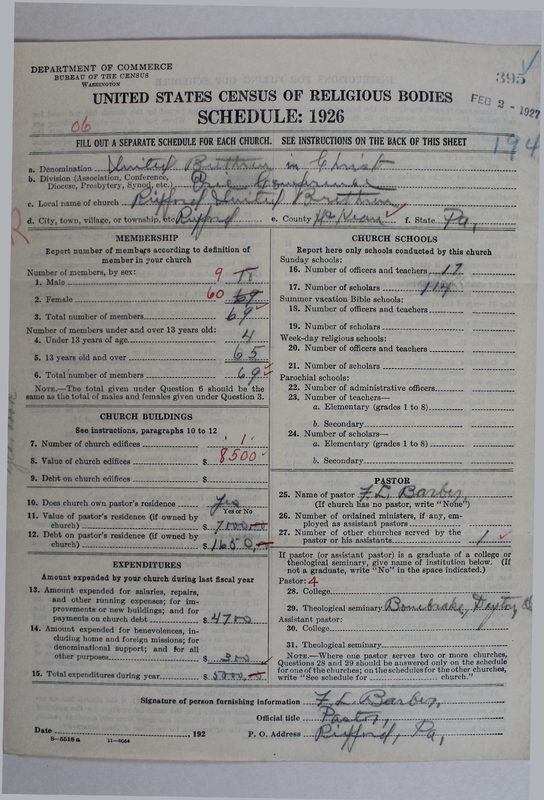 DEPARTMENT OF COMMERCE
BUREAU OF THE CENSUS
WASHINGTON
395
FEB 2 - 1927
UNITED STATES CENSUS OF RELIGIOUS BODIES
SCHEDULE: 1926
06
194
FILL OUT A SEPARATE SCHEDULE FOR EACH CHURCH. SEE INSTRUCTIONS ON THE BACK OF THIS SHEET
a. Denomination United Brethren in Christ
b. Division (Association, Conference, Diocese, Presbytery, Synod, etc.) Erie Conference
c. Local name of church Rixford United Brethren
d. City, town, village, or township, etc. Rixford e. County McKean f. State Pa.
MEMBERSHIP
Report number of members according to definition of member in your church
Number of members, by sex:
1. Male 9
2. Female 60 69
3. Total number of members 69
Number of members under and over 13 years old:
4. Under 13 years of age 4
5. 13 years old and over 65
6. Total number of members 69
NOTE.—The total given under Question 6 should be the same as the total of males and females given under Question 3.
CHURCH BUILDINGS
See instructions, paragraphs 10 to 12
7. Number of church edifices 1
8. Value of church edifices $ 8500
9. Debt on church edifices $
10. Does church own pastor's residence Yes
Yes or No
11. Value of pastor's residence (if owned by church) $
12. Debt on pastor's residence (if owned by church) $ 1650.
EXPENDITURES
Amount expended by your church during last fiscal year
13. Amount expended for salaries, repairs, and other running expenses; for improvements or new buildings; and for payments on church debt $ 4700
14. Amount expended for benevolences, including home and foreign missions; for denominational support; and for all other purposes $ 300
15. Total expenditures during year $ 5000.
CHURCH SCHOOLS
Report here only schools conducted by this church
Sunday schools:
16. Number of officers and teachers 17
17. Number of scholars 114
Summer vacation Bible schools:
18. Number of officers and teachers
19. Number of scholars
Week-day religious schools:
20. Number of officers and teachers
21. Number of scholars
Parochial schools:
22. Number of administrative officers
23. Number of teachers—
a. Elementary (grades 1 to 8)
b. Secondary
24. Number of scholars—
a. Elementary (grades 1 to 8)
b. Secondary
PASTOR
25. Name of pastor F. L. Barber,
(If church has no pastor, write "None")
26. Number of ordained ministers, if any, employed as assistant pastors
27. Number of other churches served by the pastor or his assistants 1
If pastor (or assistant pastor) is a graduate of a college or theological seminary, give name of institution below. (If not a graduate, write "No" in the space indicated.)
Pastor: 4
28. College
29. Theological seminary Bonebrake, Dayton, O
Assistant pastor:
30. College
31. Theological seminary
NOTE.—Where one pastor serves two or more churches, Questions 28 and 29 should be answered only on the schedule for one of the churches; on the schedules for the other churches, write "See schedule for church."
Signature of person furnishing information F. L. Barber,
Official title Pastor,
Date , 192 P. O. Address Rixford, Pa,
8—5518a 11—9084